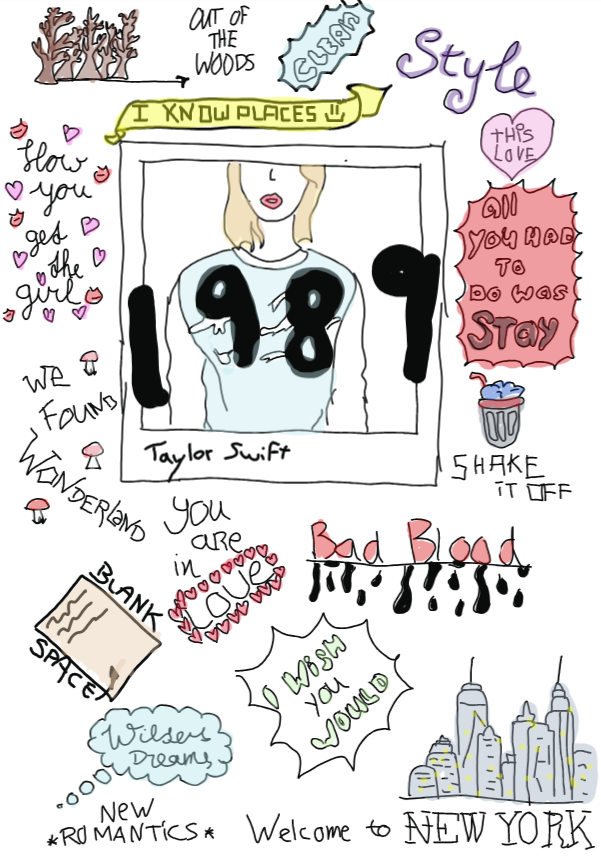 OUT OF
THE
WOODS
CLEAN
Style
I KNOW PLACES
THIS
LOVE
How
you
get
the
girl
all
you HAD
TO
DO WAS
STAY
1989
Taylor Swift
WE
FOUND
WONDERLAND
SHAKE
IT OFF
you
are
in
LOVE
Bad Blood
BLANK
SPACE
I WISH
YOU
WOULD
Wildest
Dreams
NEW
*ROMANTICS*
Welcome to NEW YORK